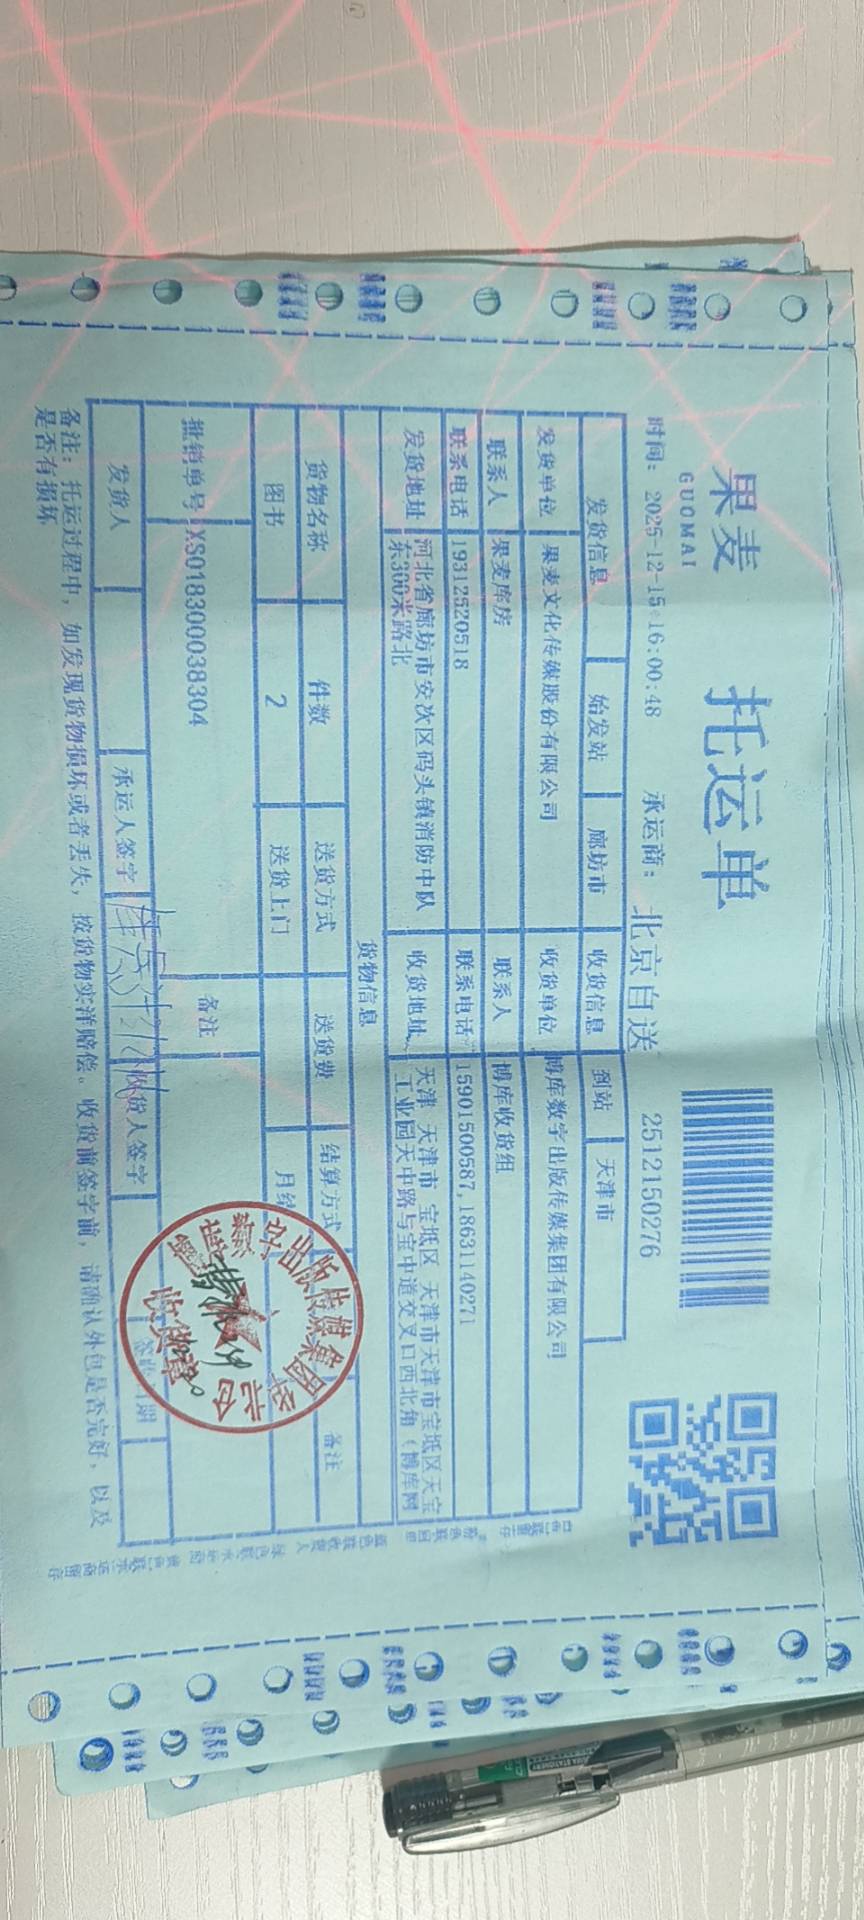 果麦
GUOMAI
托运单
时间: 2025-12-15 16:00:48 承运商: 北京自送 2512150276
发货信息 始发站 廊坊市 收货信息 到站 天津市
发货单位 果麦文化传媒股份有限公司 收货单位 博库数字出版传媒集团有限公司
联系人 果麦库房 联系人 博库收货组
联系电话 19312520518 联系电话 15901500587,18631140271
发货地址 河北省廊坊市安次区码头镇消防中队东300米路北 收货地址 天津 天津市 宝坻区 天津市天津市宝坻区天宝工业园天中路与宝中道交叉口西北角（博库网
货物信息
货物名称 件数 送货方式 送货费 结算方式 备注
图书 2 送货上门 月结
批销单号 XS018300038304 备注
发货人 承运人签字 收货人签字 签收日期
备注: 托运过程中, 如发现货物损坏或者丢失, 按货物实洋赔偿。收货前签字前, 请确认外包是否完好, 以及
是否有损坏
数字出版传媒集团
收货章